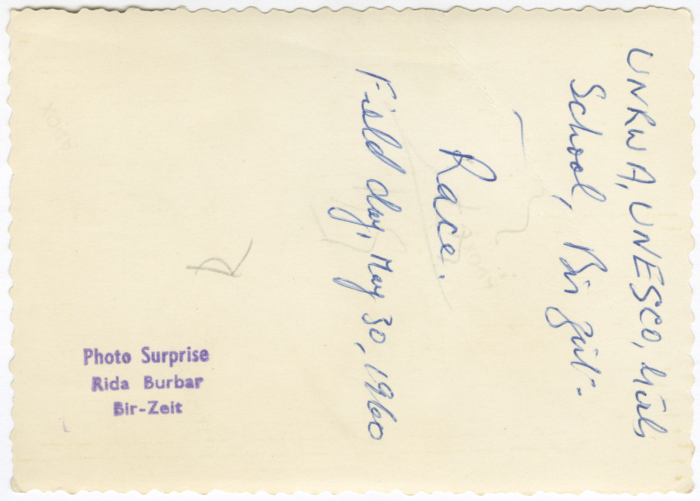 UNRWA, UNESCO, Girls
School, Bir Zeit-
Race.
Field day, May 30, 1960
Photo Surprise
Rida Burbar
Bir-Zeit